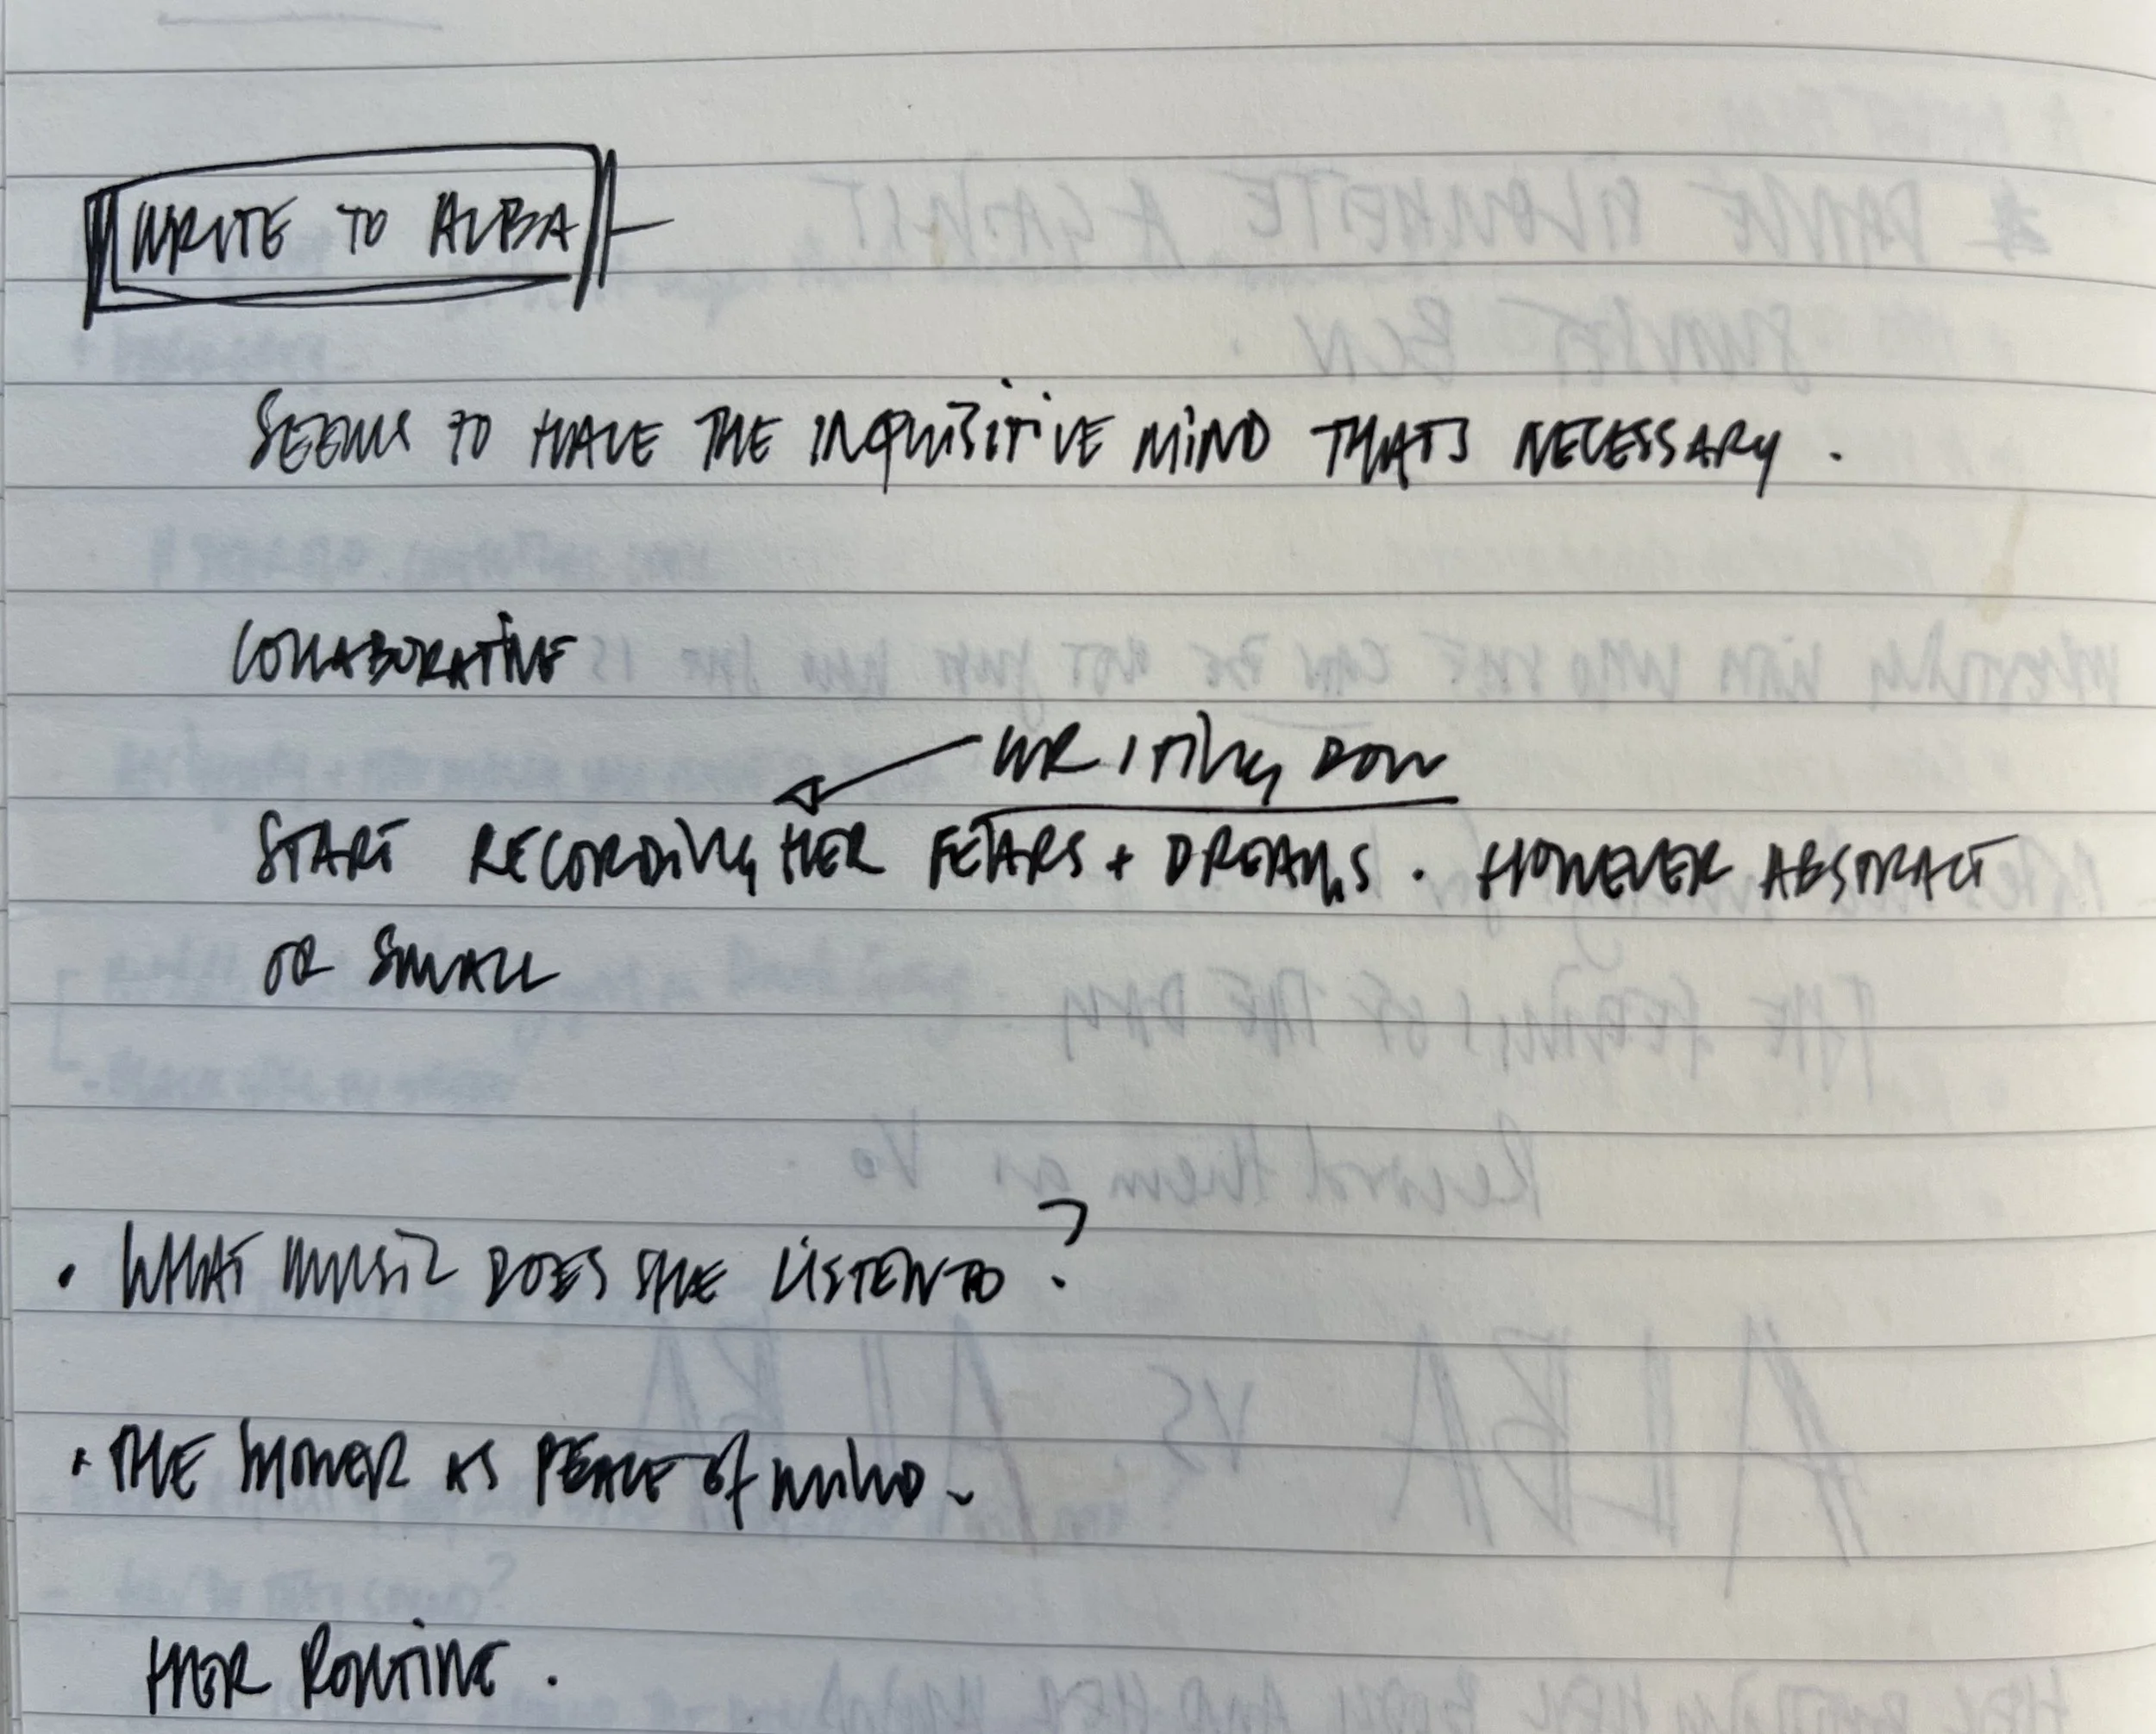 WRITE TO ALBA -
SEEMS TO HAVE THE INQUISITIVE MIND THATS NECESSARY.
COLLABORATIVE
WRITING DOWN
START RECORDING HER FEARS + DREAMS. HOWEVER ABSTRACT
OR SMALL
• WHAT MUSIC DOES SHE LISTEN TO?
• THE SHOWER AS PEACE of MIND -
HER ROUTINE.